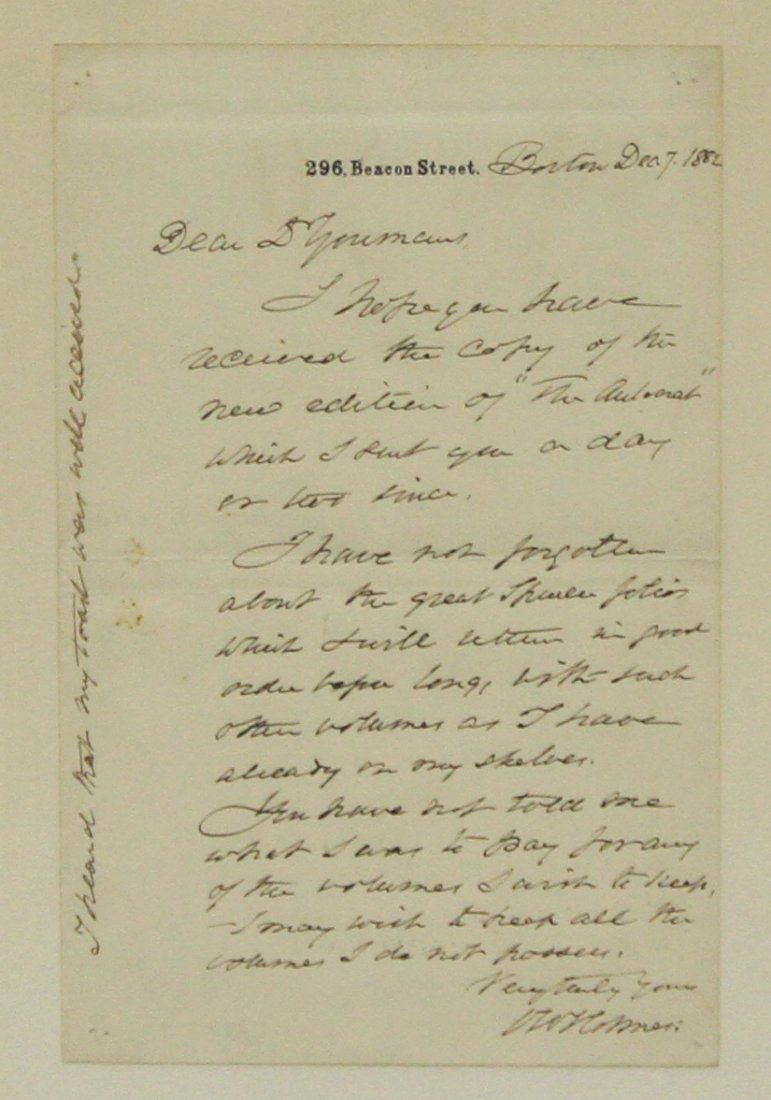 296, Beacon Street. Boston Dec. 7. 1882
Dear Dr Youmans,
I hope you have
received the copy of the
new edition of "The Autocrat"
which I sent you a day
or two since.
I have not forgotten
about the great Spencer folios
which I will return in good
order before long, with such
other volumes as I have
already on my shelves.
You have not told me
what I was to pay for any
of the volumes I wish to keep,
- I may wish to keep all the
volumes I do not possess.
Very truly yours
O W Holmes.
I heard that my toast was well received.